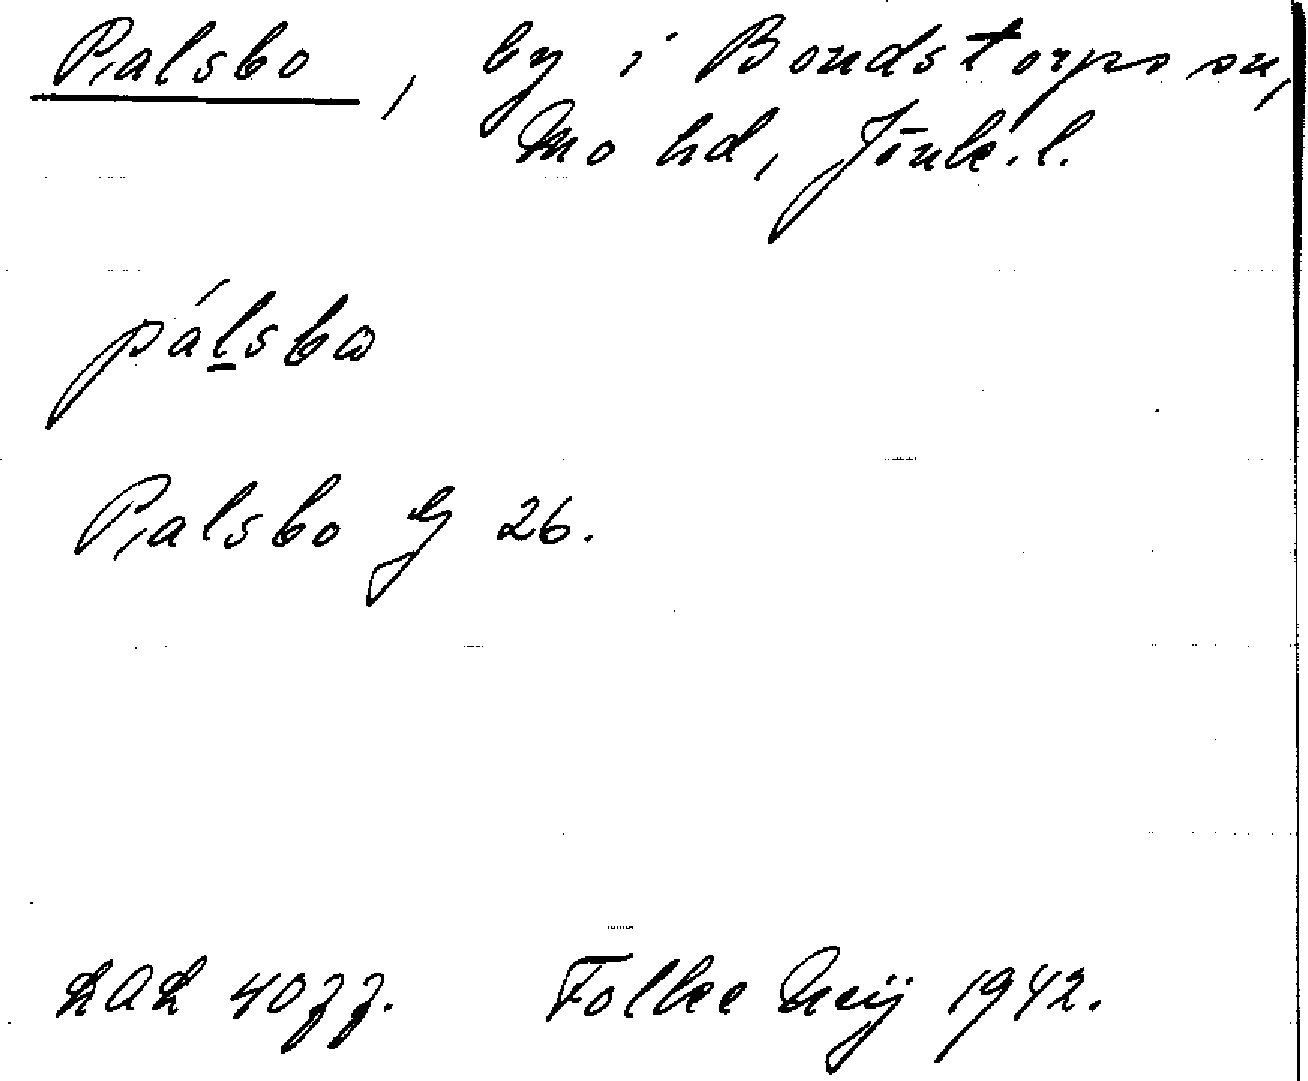 Palsbo, by i Bondstorps sn,
Mo hd, Jönk. l.
pálsbω
Palsbo G 26.
LAL 40ff. Folke Meij 1942.